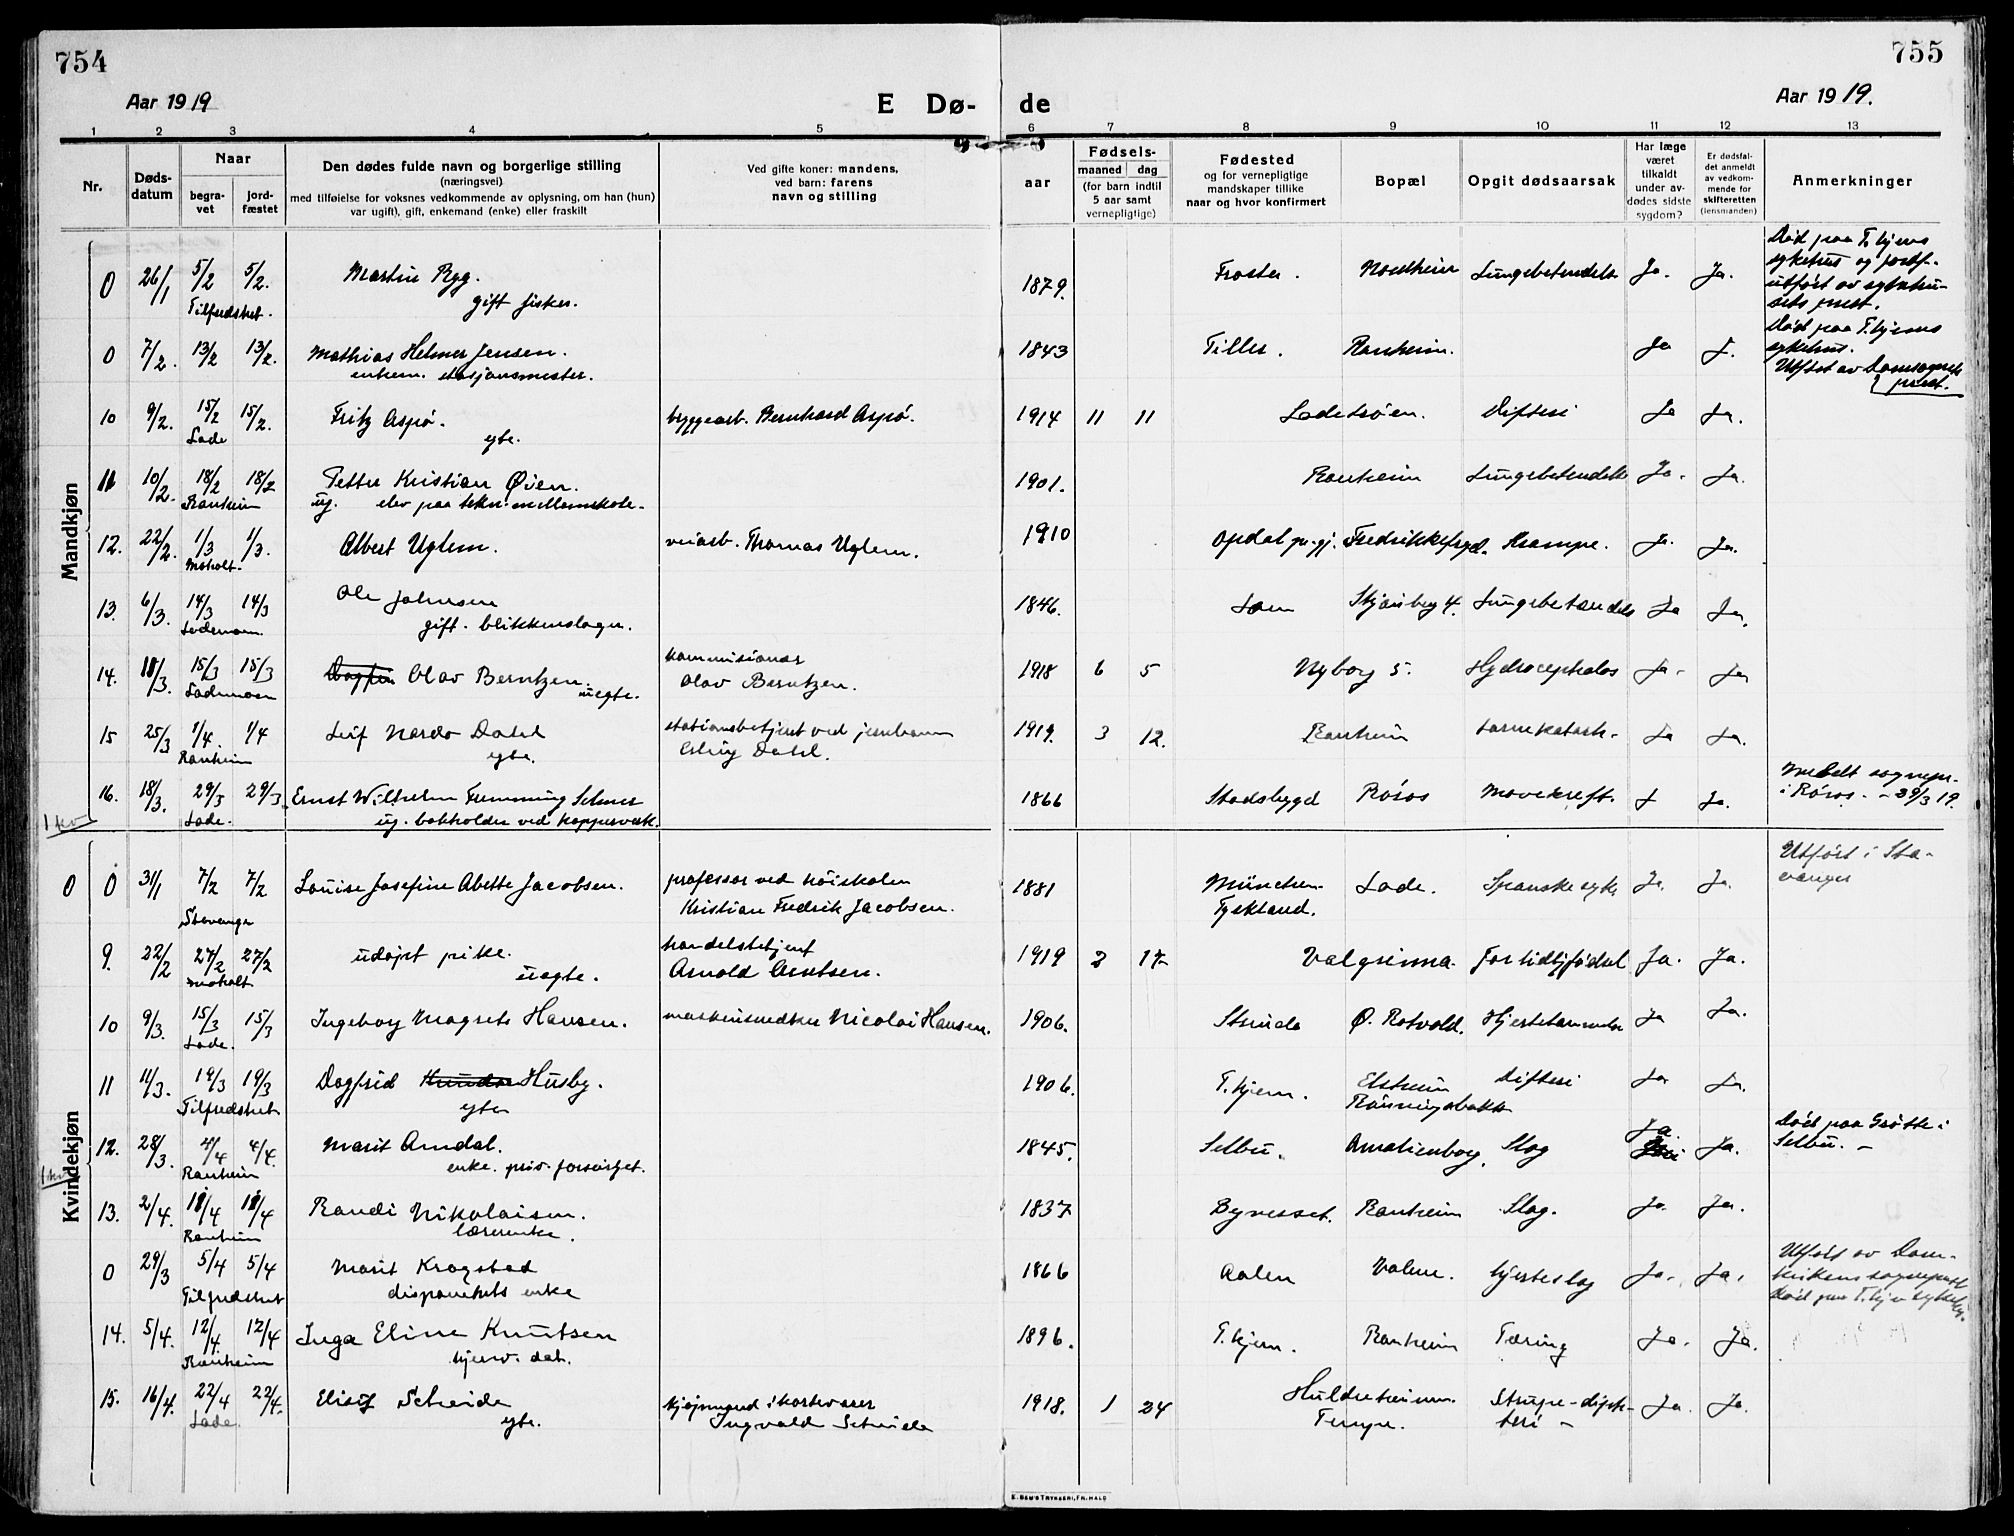 754
755
Aar 1919
E Dø-
de
Aar 1919.
1 2 3 4 5 6 7 8 9 10 11 12 13
Nr.
Døds-
datum
Naar
begra-
vet
jord-
fæstet
Den dødes fulde navn og borgerlige stilling
(næringsvei)
med tilføielse for voksnes vedkommende av oplysning, om han (hun)
var ugift), gift, enkemand (enke) eller fraskilt
Ved gifte koner: mandens,
ved barn: farens
navn og stilling
aar
Fødsels-
maaned dag
(for barn indtil
5 aar samt
vernepligtige)
Fødested
og for vernepligtige
mandskaper tillike
naar og hvor konfirmert
Bopæl
Opgit dødsaarsak
Har læge
været
tilkaldt
under av-
dødes sidste
sygdom?
Er dødsfal-
det anmeldt
av vedkom-
mende for
skifteretten
(lensmanden)
Anmerkninger
Mandkjøn
0 26/1 5/2 5/2. Martin Ryg. 1879. Frosta. Lungebetændelse Ja. Ja. Død paa T.hjems
Tilfredshet. gift fisker. sykehus og jordf.
utført av sykehu-
sets prest.
0 7/2. 13/2 13/2. Mathias Helmer Jensen. 1843 Tiller. Ranheim. Ja J. Død paa T.hjems
enkem. stasjonsmester. sykehus.
Utført av Domsognets
prest.
10 9/2. 15/2 15/2. Fritz Aspø. byggearb. Bernhard Aspø. 1914 11 11 Ladetrøen. Difteri Ja Ja.
Lade egte.
11 10/2. 18/2 18/2 Petter Kristian Øien. 1901. Ranheim Lungebetændelse Ja. Ja.
Ranheim ug. elev paa tekn. mellemskole.
12. 22/2. 1/3 1/3. Albert Uglem. veiarb. Thomas Uglem. 1910 Opdal pr.gj. Fredrikkefryd. Krampe. Ja. Ja.
Moholt.
13. 6/3. 14/3 14/3 Ole Johnsen 1846. Lom Lungebetændelse Ja Ja.
Lademoen. gift. blikkenslager.
14. 11/3. 15/3 15/3 Dagfin Olav Berntzen. kommisionær 1918 6 5 Nyborg 5. Hydrocephalus Ja. Ja
Lademoen uegte. Olav Berntzen.
15 25/3 1/4. 1/4 Leif Nardo Dahl stationsbetjent ved jernbanen 1919. 3 12. Ranheim Tarmkatarh. Ja Ja.
Ranheim egte. Dahl.
16. 18/3. 29/3 29/3. Ernst Wilhelm Flemming Selmer 1866 Stadsbygd Røros Mavekreft. J Ja. Meldt sognepr.
Lade. ug. bokholder ved kopperverk. i Røros. - 29/3 19.
Kvindekjøn
0 0 31/1 7/2 7/2 Louise Josefine Abette Jacobsen. professor ved høiskolen 1881 München Lade. Spanske syke Ja. Ja. Utført i Sta-
Stavanger Kristian Fredrik Jacobsen. Tyskland. vanger
9. 22/2 27/2 27/2 udøpt pike. handelsbetjent 1919 2 17 Valgrinna. For tidlig fødsel Ja. Ja.
Moholt uegte. Arnold
10 9/3. 15/3 15/3 Ingeborg Magrete Hansen. Nicolai Hansen. 1906. Strinda Ø. Rotvold. Ja Ja.
Lade.
11 11/3. 19/3 19/3 Dagfrid Husby. 1906. T.hjem. Difteri Ja Ja.
Tilfredshet egte
12. 28/3. 4/4 4/4. Marit Amdal. 1845. Selbu. Amalienborg. Slag Ja. Ja. Død paa Grøtte i
Ranheim enke. priv. forsørget. Selbu. -
13. 2/4. 11/4 11/4 Randi Nikolaisen. 1837. Bynesset. Ranheim Slag. Ja. Ja.
Ranheim lærerenke.
0 29/3 5/4 5/4 Marit Kragstad 1866 Aalen Valene. hjerteslag Ja. Ja. Utført av Dom-
Tilfredshet disponents enke kirkens sogneprest
Død paa T.hjem sykehus.
14. 5/4. 12/4. 12/4 Inga Eline Knutsen 1896. T.hjem. Ranheim Tæring Ja. Ja.
Ranheim hjemv. dat.
15. 16/4. 22/4 22/4. Scheide kjøpmand i kortevarer 1918. 1 24 Huldreheimen Strupe-difte- Ja. Ja.
Lade egte. Ingvald Scheide Tempe. teri -
E. BEM'S TRYKKERI, FR. HALD